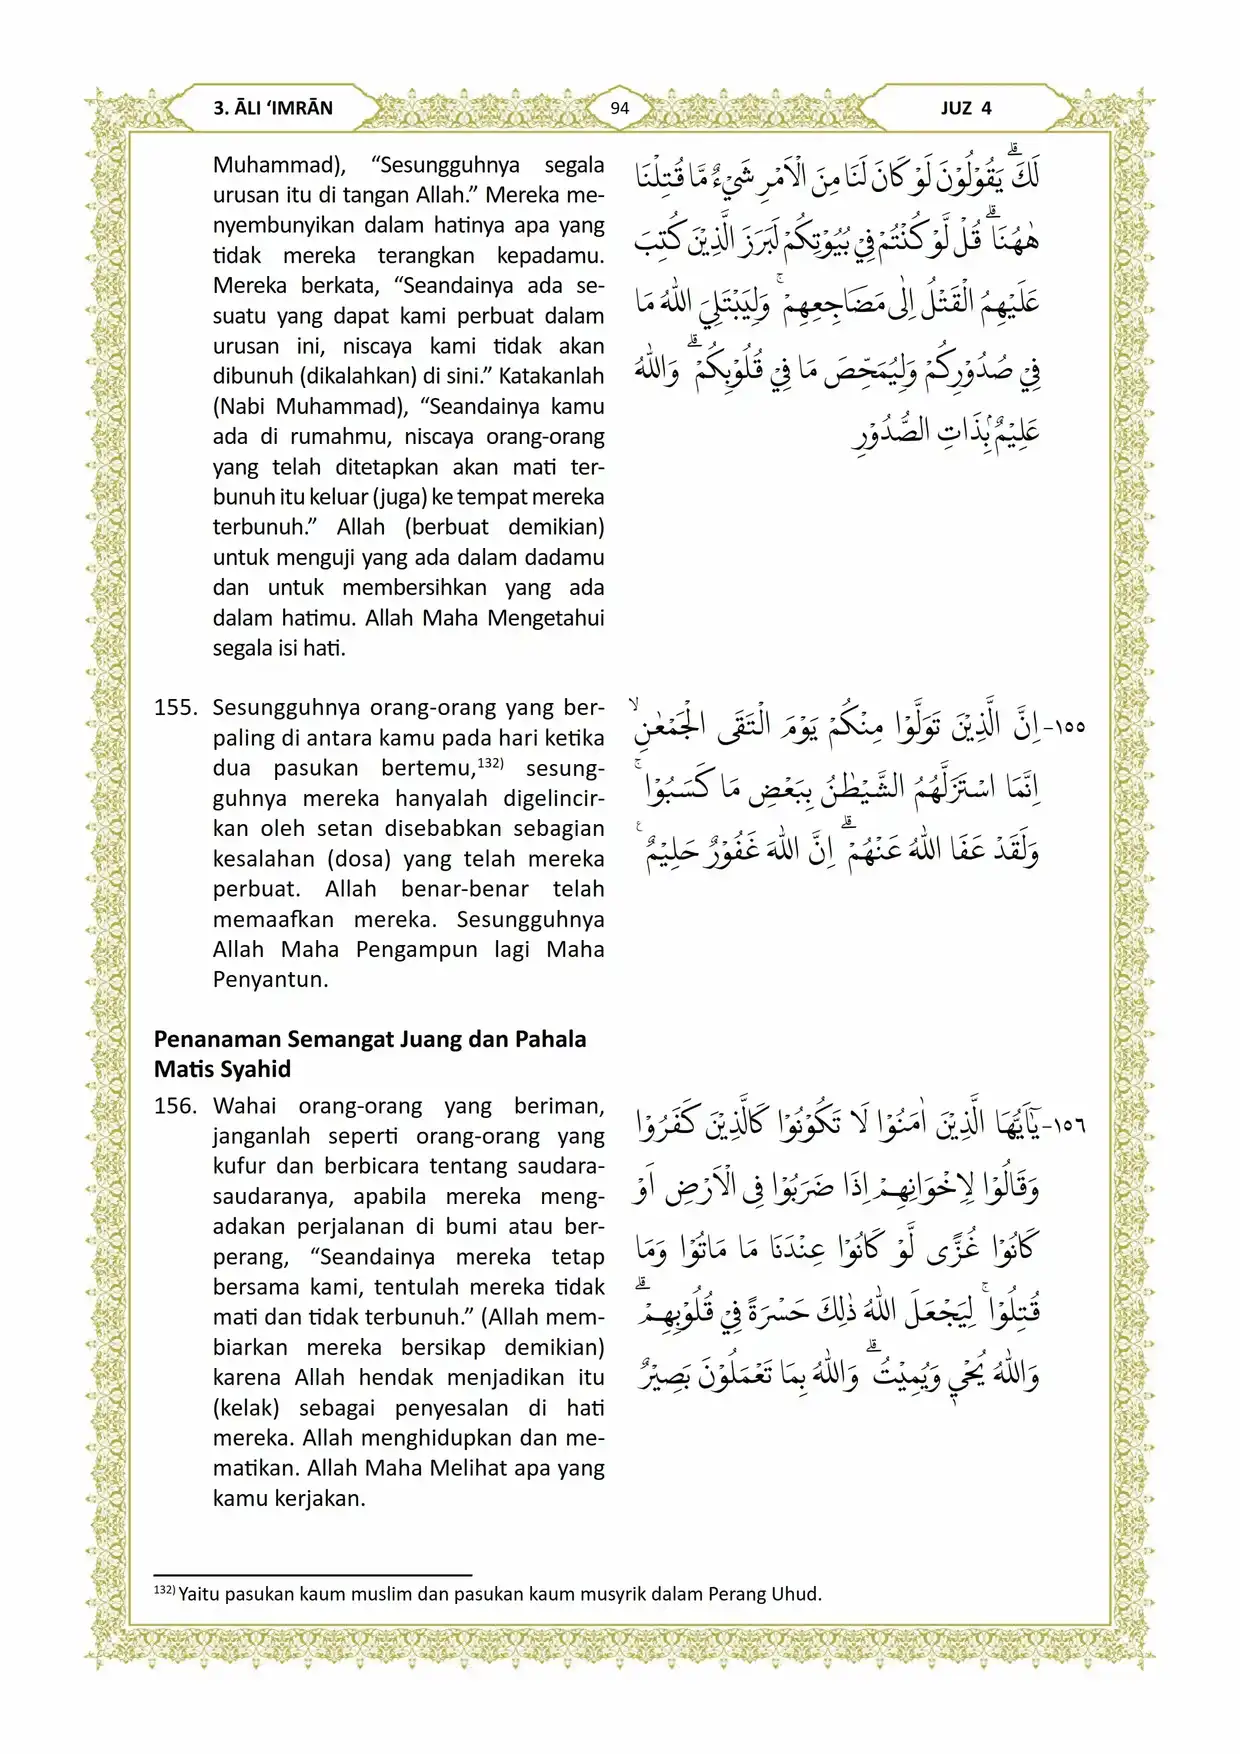 3. ĀLI ‘IMRĀN
94
JUZ 4
Muhammad), “Sesungguhnya segala
urusan itu di tangan Allah.” Mereka me-
nyembunyikan dalam hatinya apa yang
tidak mereka terangkan kepadamu.
Mereka berkata, “Seandainya ada se-
suatu yang dapat kami perbuat dalam
urusan ini, niscaya kami tidak akan
dibunuh (dikalahkan) di sini.” Katakanlah
(Nabi Muhammad), “Seandainya kamu
ada di rumahmu, niscaya orang-orang
yang telah ditetapkan akan mati ter-
bunuh itu keluar (juga) ke tempat mereka
terbunuh.” Allah (berbuat demikian)
untuk menguji yang ada dalam dadamu
dan untuk membersihkan yang ada
dalam hatimu. Allah Maha Mengetahui
segala isi hati.
لَكَۗ يَقُوْلُوْنَ لَوْ كَانَ لَنَا مِنَ الْاَمْرِ شَيْءٌ مَّا قُتِلْنَا
هٰهُنَاۗ قُلْ لَّوْ كُنْتُمْ فِيْ بُيُوْتِكُمْ لَبَرَزَ الَّذِيْنَ كُتِبَ
عَلَيْهِمُ الْقَتْلُ اِلٰى مَضَاجِعِهِمْۚ وَلِيَبْتَلِيَ اللّٰهُ مَا
فِيْ صُدُوْرِكُمْ وَلِيُمَحِّصَ مَا فِيْ قُلُوْبِكُمْۗ وَاللّٰهُ
عَلِيْمٌۢ بِذَاتِ الصُّدُوْرِ
155. Sesungguhnya orang-orang yang ber-
paling di antara kamu pada hari ketika
dua pasukan bertemu,132) sesung-
guhnya mereka hanyalah digelincir-
kan oleh setan disebabkan sebagian
kesalahan (dosa) yang telah mereka
perbuat. Allah benar-benar telah
memaafkan mereka. Sesungguhnya
Allah Maha Pengampun lagi Maha
Penyantun.
١٥٥- اِنَّ الَّذِيْنَ تَوَلَّوْا مِنْكُمْ يَوْمَ الْتَقَى الْجَمْعٰنِۙ
اِنَّمَا اسْتَزَلَّهُمُ الشَّيْطٰنُ بِبَعْضِ مَا كَسَبُوْاۚ
وَلَقَدْ عَفَا اللّٰهُ عَنْهُمْۗ اِنَّ اللّٰهَ غَفُوْرٌ حَلِيْمٌ ࣖ
Penanaman Semangat Juang dan Pahala
Matis Syahid
156. Wahai orang-orang yang beriman,
janganlah seperti orang-orang yang
kufur dan berbicara tentang saudara-
saudaranya, apabila mereka meng-
adakan perjalanan di bumi atau ber-
perang, “Seandainya mereka tetap
bersama kami, tentulah mereka tidak
mati dan tidak terbunuh.” (Allah mem-
biarkan mereka bersikap demikian)
karena Allah hendak menjadikan itu
(kelak) sebagai penyesalan di hati
mereka. Allah menghidupkan dan me-
matikan. Allah Maha Melihat apa yang
kamu kerjakan.
١٥٦- يٰٓاَيُّهَا الَّذِيْنَ اٰمَنُوْا لَا تَكُوْنُوْا كَالَّذِيْنَ كَفَرُوْا
وَقَالُوْا لِاِخْوَانِهِمْ اِذَا ضَرَبُوْا فِى الْاَرْضِ اَوْ
كَانُوْا غُزًّى لَّوْ كَانُوْا عِنْدَنَا مَا مَاتُوْا وَمَا
قُتِلُوْاۚ لِيَجْعَلَ اللّٰهُ ذٰلِكَ حَسْرَةً فِيْ قُلُوْبِهِمْۗ
وَاللّٰهُ يُحْيٖ وَيُمِيْتُۗ وَاللّٰهُ بِمَا تَعْمَلُوْنَ بَصِيْرٌ
132) Yaitu pasukan kaum muslim dan pasukan kaum musyrik dalam Perang Uhud.